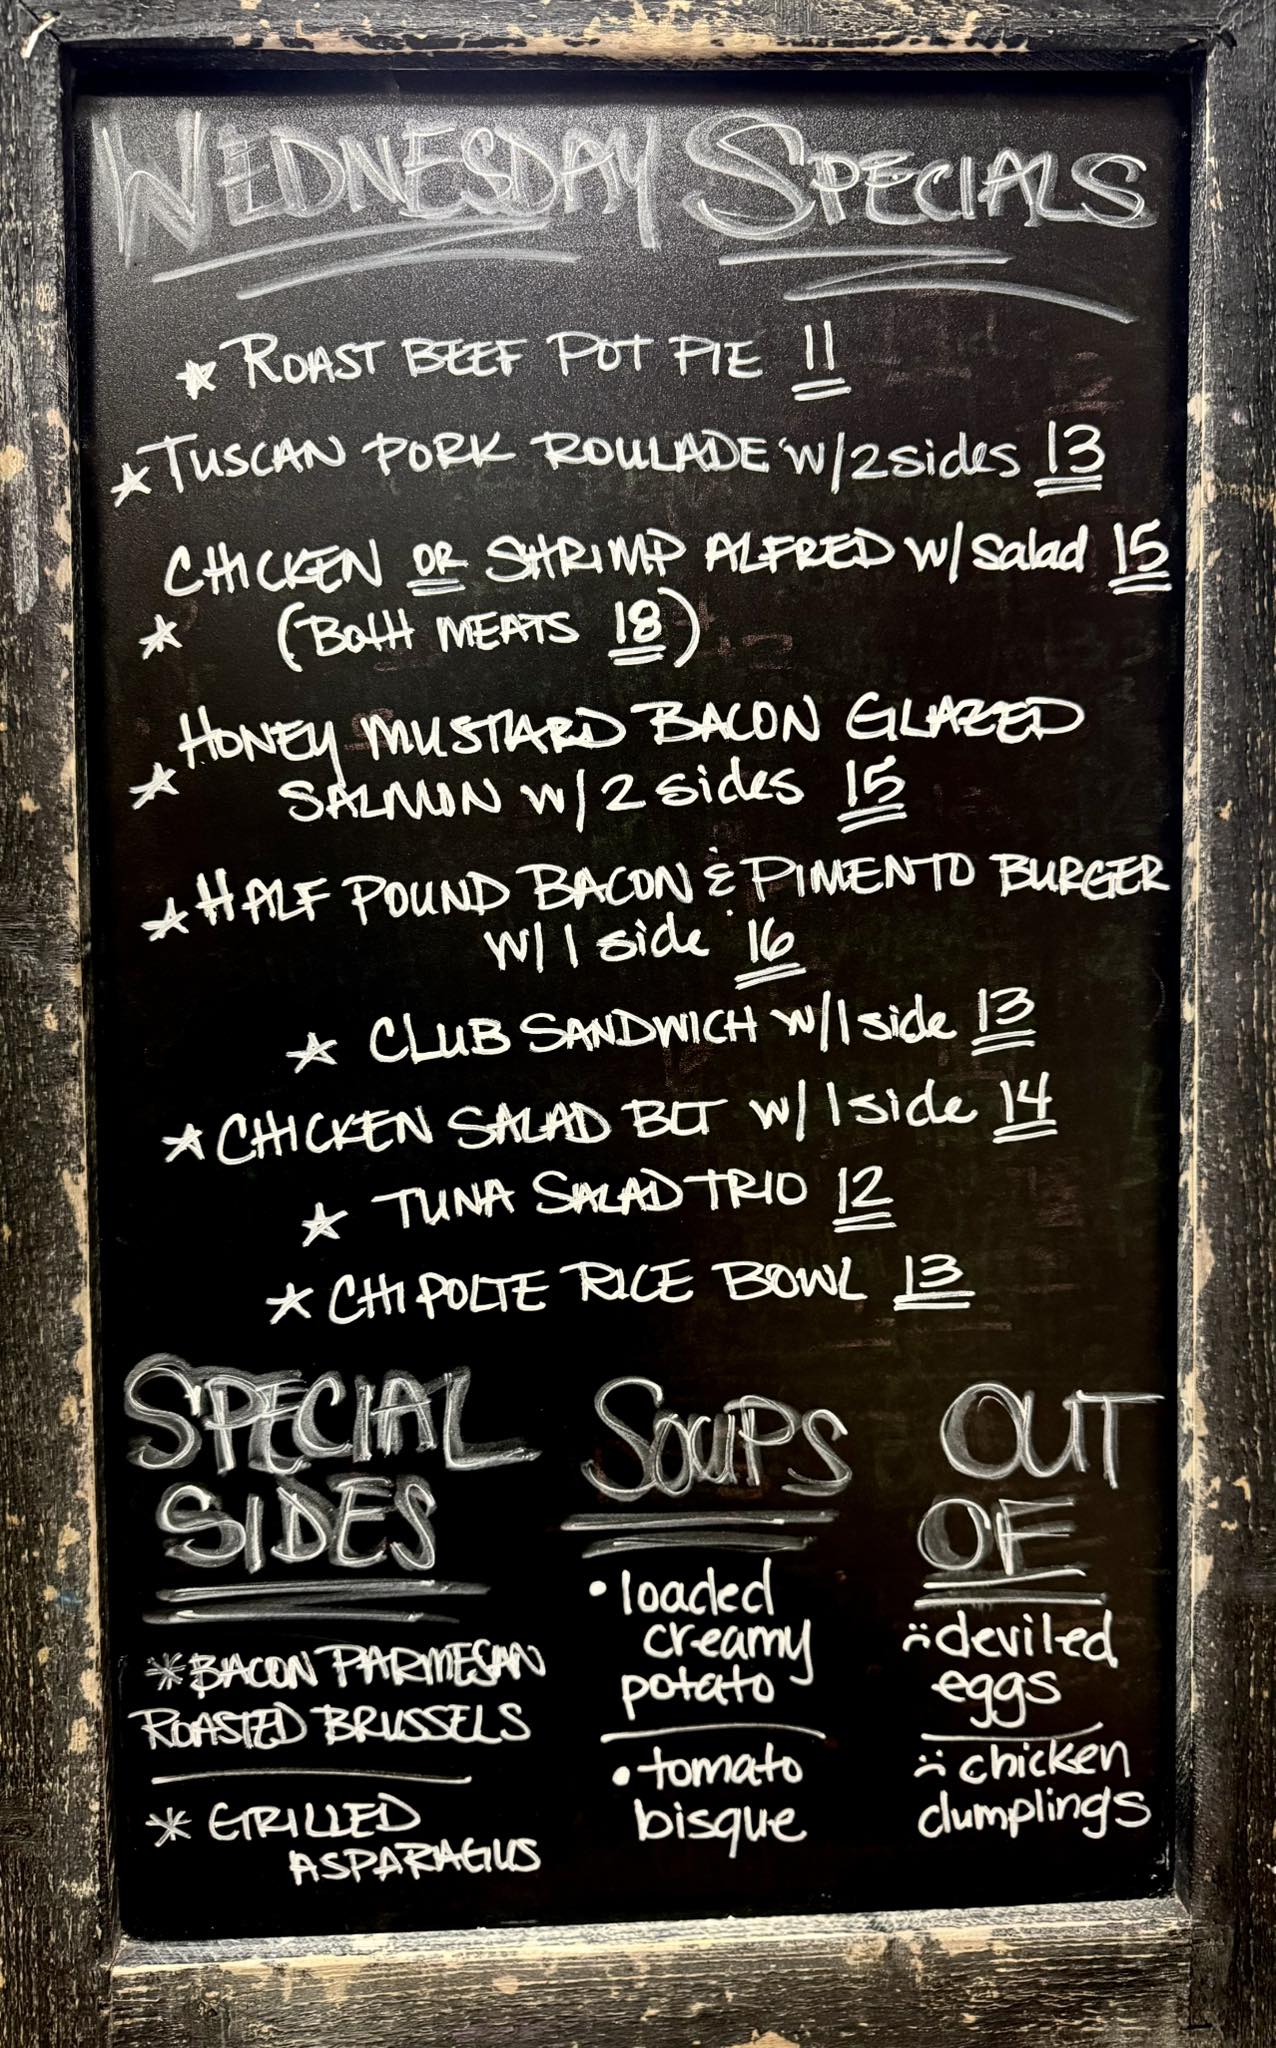 WEDNESDAY SPECIALS
☆ ROAST BEEF POT PIE 11
☆ TUSCAN PORK ROULADE w/2 sides 13
CHICKEN OR SHRIMP ALFRED w/ salad 15
☆ (BOTH MEATS 18)
HONEY MUSTARD BACON GLAZED
☆ SALMON w/ 2 sides 15
☆ HALF POUND BACON & PIMENTO BURGER
w/ 1 side 16
☆ CLUB SANDWICH w/1 side 13
☆ CHICKEN SALAD BLT w/ 1 side 14
☆ TUNA SALAD TRIO 12
☆ CHIPOLTE RICE BOWL 13
SPECIAL
SIDES
* BACON PARMESAN
ROASTED BRUSSELS
* GRILLED
ASPARAGUS
SOUPS
• loaded
creamy
potato
• tomato
bisque
OUT
OF
:( deviled
eggs
:( chicken
dumplings